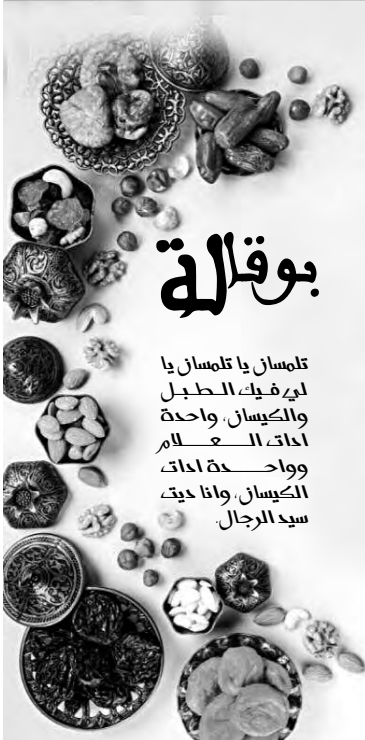 بوقالة
تلمسان يا تلمسان يا
لي فيك الطبل
والكيسان، واحدة
ادات العلام
وواحدة ادات
الكيسان، وانا ديت
سيد الرجال.